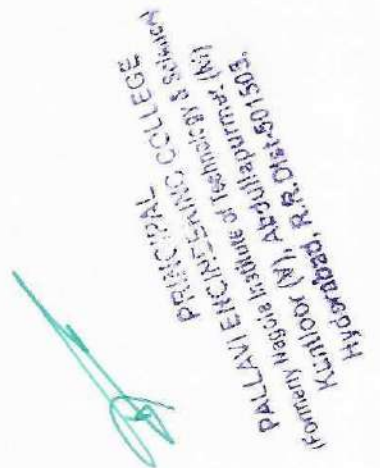 PRINCIPAL
PALLAVI ENGINEERING COLLEGE
(Formerly Nagole Institute of Technology & Science)
Kuntloor (V), Abdullapurmet (M)
Hyderabad, R.R. Dist-501505.